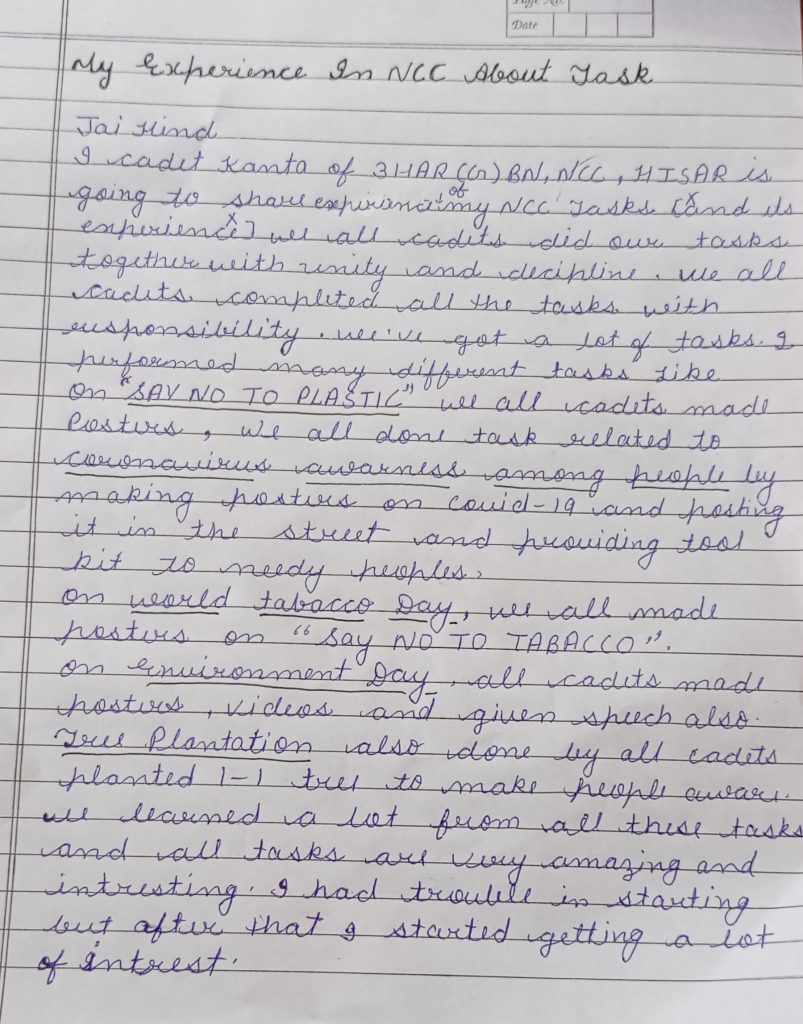 Page No.
Date
My Experience In NCC About Task
Jai Hind
I cadet Kanta of 3HAR(G) BN, NCC, HISAR is
going to share experience of my NCC Tasks [and its
experience] we all cadets did our tasks
together with unity and decipline. we all
cadets completed all the tasks with
responsibility. we've got a lot of tasks. I
performed many different tasks like
on "SAY NO TO PLASTIC" we all cadets made
Posters, we all done task related to
coronavirus awarness among people by
making posters on covid-19 and posting
it in the street and providing tool
kit to needy peoples.
on world tabacco Day, we all made
posters on "Say NO TO TABACCO".
on Environment Day, all cadets made
posters, videos and given speech also.
Tree Plantation also done by all cadets
planted 1-1 tree to make people aware.
we learned a lot from all these tasks
and all tasks are very amazing and
intresting. I had trouble in starting
but after that I started getting a lot
of intrest.